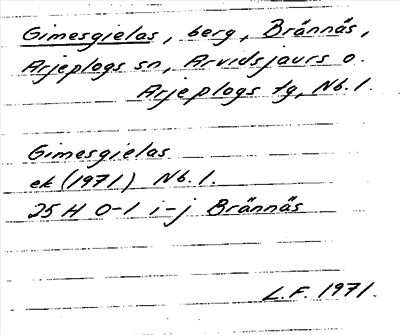 Gimesgielas, berg, Brännäs,
Arjeplogs sn, Arvidsjaurs o.
Arjeplogs tg, Nb. l.
Gimesgielas
ek (1971) Nb. l.
25 H 0-1 i-j Brännäs
L.F. 1971.